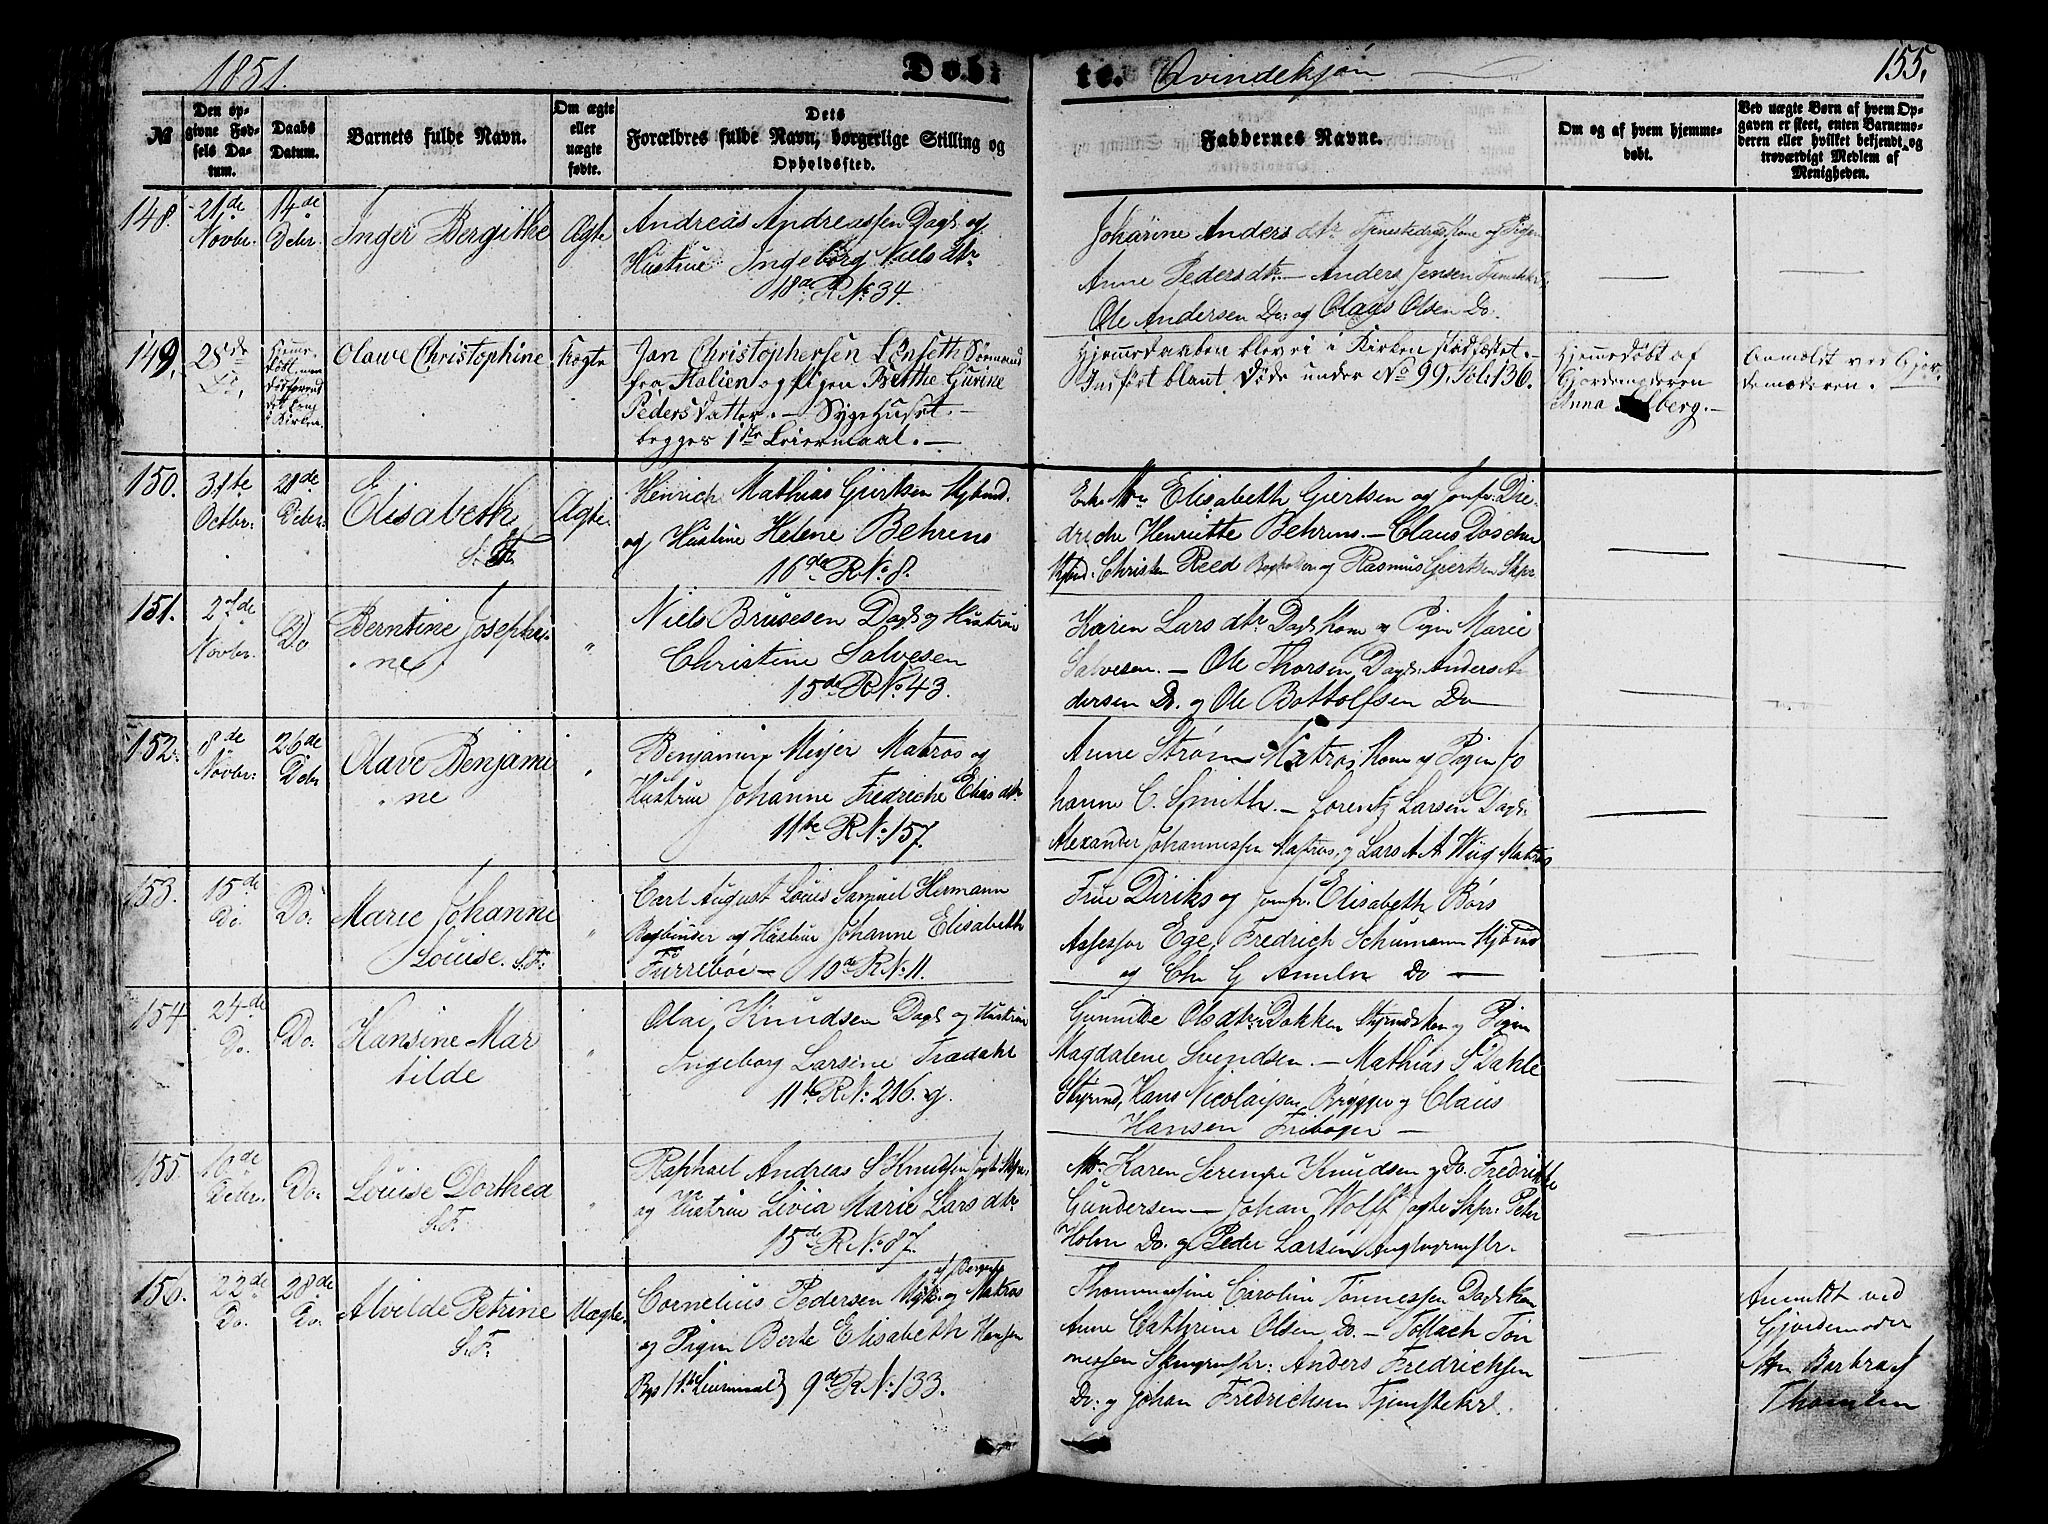 1851.
Døb:
te. Qvindekjøn
155.
№
Den opgivne Fødsels Datum.
Daabs Datum.
Barnets fulde Navn.
Om ægte eller uægte fødte.
Dets Forældres fulde Navn, borgerlige Stilling og Opholdssted.
Faddernes Navne.
Om og af hvem hjemmedøbt.
Ved uægte Børn af hvem Opgaven er skeet, enten Barnemoderen eller hvilket bekjendt og troværdigt Medlem af Menigheden.
148. 21de Novbr. 14de Debr. Inger Bergithe Ægte
Andreas Andreassen Dagl. og
Hustrue Ingeborg Niels dtr
18de R No 34.
Johanne Anders dtr Kone og Pigen
Anne Peders dtr — Anders Jensen
Ole Andersen Do: og Olaus Olsen Do.
149. 28de Do. Olawe Christophine. Uægte
Jan Christophersen Lönseth Sørmand
fra Italien og Pigen Berthe Gurine
Pedersdatter. — Sygehuset. —
begges 1ste Leiermaal. —
Hjemedaaben blev ei i Kirken stadfæstet. —
Indført blant Døde under No 99. Fol: 136.
Hjemedøbt af
Gjordemoderen
Anna
Anmeldt ved Gjor-
demoderen. —
150. 31te Octbr: 21de Debr. Elisabeth Ægte.
S. F.
Henrich Mathias Giertsen Kjbmd.
og Hustrue Helene Behrens
16de R No 8.
Elisabeth Giertsen og Jomfr. Die-
driche Henriette Behrens. — Claus Doscher
Kjbmd. Christen Reed og Rasmus Giertsen Skpr.
151. 27de Novbr. Do Berntine Josephi- "
ne
Niels Brusesen Dagl og Hustrue
Christine Salvesen
15de R No 43.
Karen Lars dtr Dagl. Kone og Pigen Marie
Salvesen. — Ole Thorsen Dagl. Anders An
dersen Do. og Ole Bottolfsen Do
152. 8de Novbr: 26de Debr Olave Benjami "
ne
Benjamin Meyer Matros og
Hustrue Johanne Fredriche Elias dtr
11te R No 157.
Anne Strøm Matros Kone og Pigen Jo
hanne C. Smith. — Lorentz Larsen Dagl.
Alexander Johannessen Matros, og Lars A A Wiig Matros
153. 15de Do. Do: Marie Johanne "
Louise. S. F:
Carl August Louis Samuel Hermann
Bogbinder og Hustrue Johanne Elisabeth
Furrebøe — 10de R No 11.
Frue Diriks og Jomfr. Elisabeth Børs
Assessor Ege, Fredrich Schumann Kjbmd
og Chr G Ameln Do —
154 24de Do. Do. Hansine Mar "
tilde
Olai Knudsen Dagl og Hustrue
Ingeborg Larsine Fradahl
11te R No 216. g.
Gunnilde Olsdtr Dokken Styrmds kon og Pigen
Magdalene Svendsen. — Mathias S Dahle
Styrmd, Hans Nicolaisen og Claus
Hansen
155. 10de Debr. Do. Louise Dorthea "
S. F.
Raphael Andreas S Knudsen Jagte Skpr.
og Hustrue Livia Marie Lars dtr
15de R No 87.
Karen Serine Knudsen og Do. Fredrikke
Gundersen — Johan Wolff Jagte Skpr: Peter
Holm Do. og Peder Larsen
156. 22de Do. 28de Do. Alvilde Petrine Uægte.
S. F.
Cornelius Pedersen af Bergen Matros
og Pigen Berte Elisabeth Hansen
9de R No 133.
Thommesine Caroline Tønnessen Dagls kone
Anne Cathrine Olsen Do. — Tollach Tøn
nessen Anders Fredrichsen
Do: og Johan Fredrichsen Tjenstekrl.
Anmeldt ved
Gjordemoder
Barbra
Thomsen